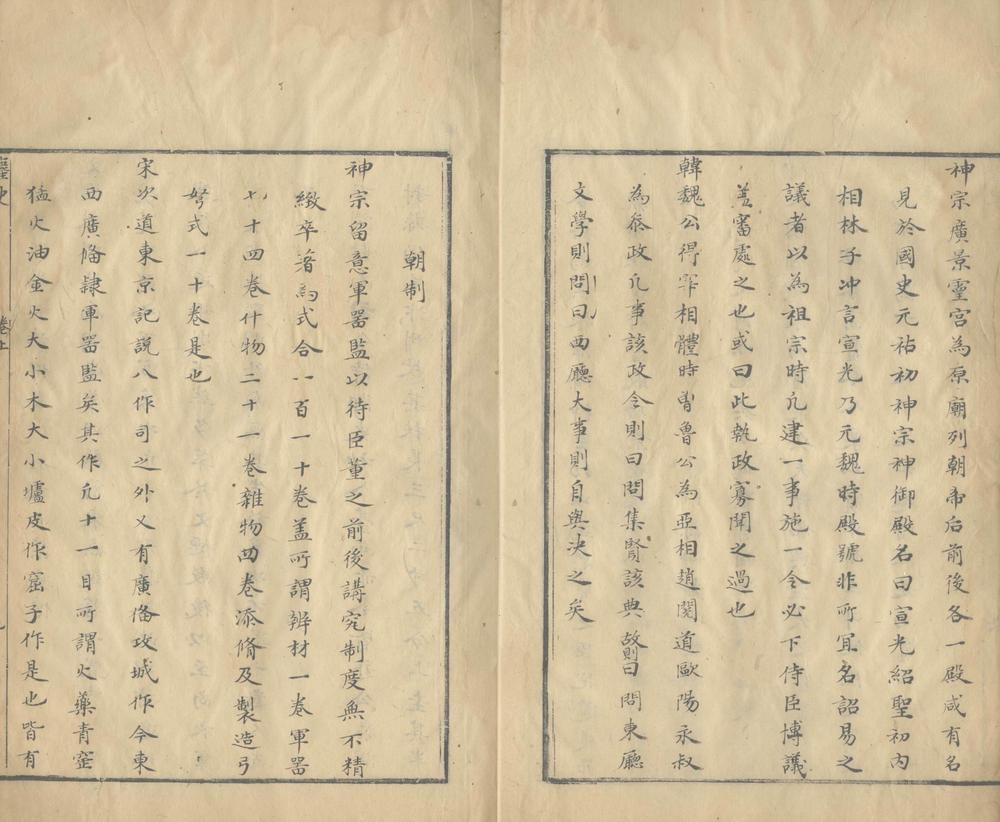 神宗廣景靈宮為原廟列朝帝后前後各一殿咸有名
見於國史元祐初神宗神御殿名曰宣光紹聖初內
相林子冲言宣光乃元魏時殿號非所宜名詔易之
議者以為祖宗時凡建一事施一令必下侍臣博議
盖審處之也或曰此執政寡聞之過也
韓魏公得宰相體時曽魯公為亞相趙閱道歐陽永叔
為叅政凡事該政令則曰問集賢該典故則曰問東廳
文學則問曰西廳大事則自與决之矣
朝制
神宗留意軍器監以待臣董之前後講究制度無不精
緻卒著為式合一百一十卷盖所謂辨材一卷軍器
七十四卷什物二十一卷雜物四卷添脩及製造弓
弩式一十卷是也
宋次道東京記説八作司之外又有廣俻攻城作今東
西廣俻隸軍器監矣其作凡十一目所謂火藥青窑
猛火油金火大小木大小爐皮作窟子作是也皆有
麈史
卷上